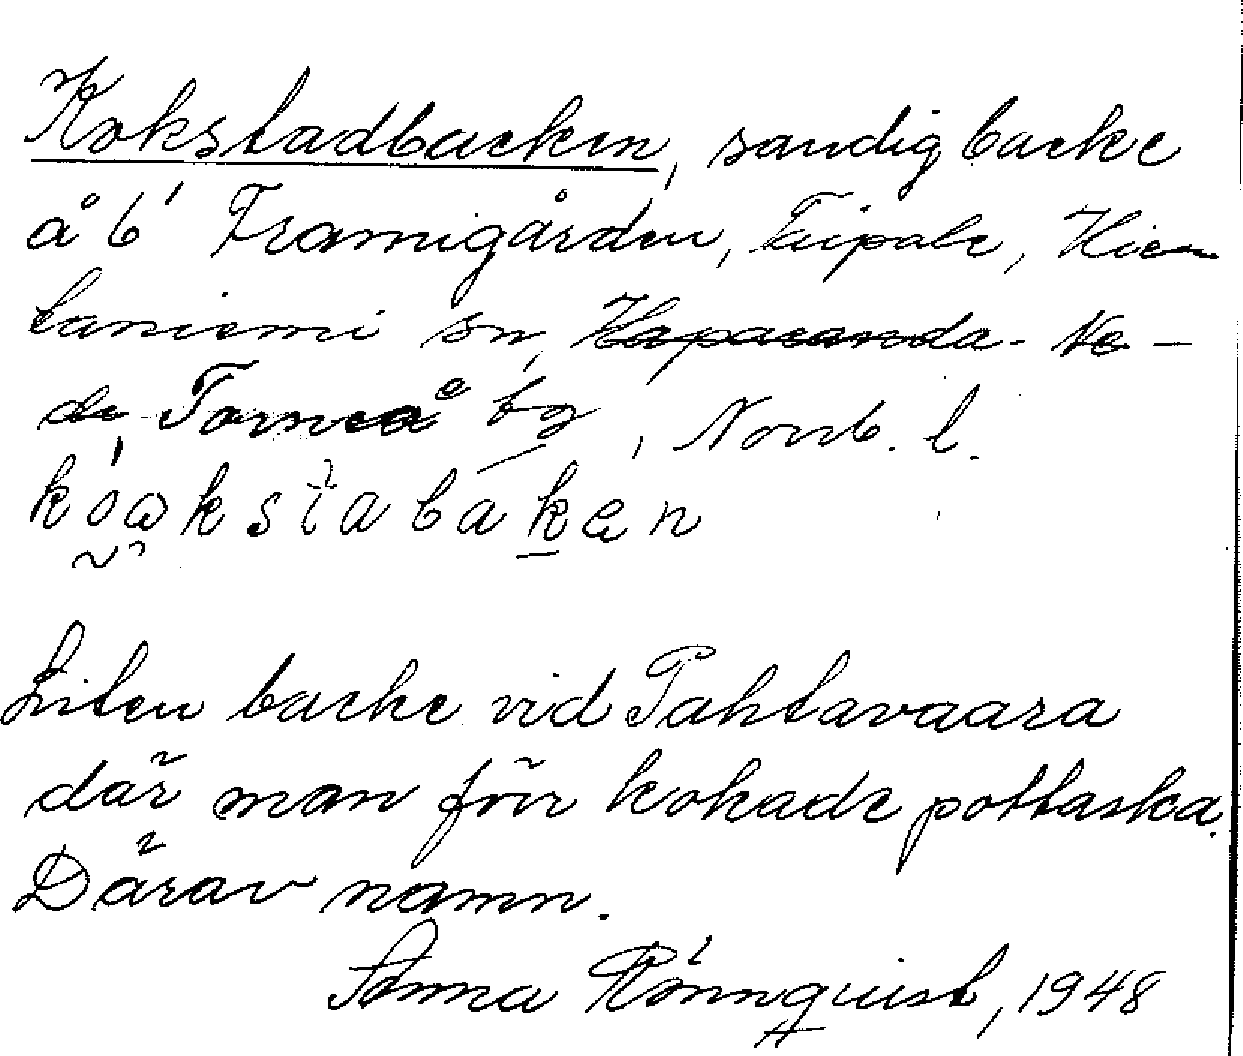 Kokstadbacken, sandig backe
å b' Framigården, Päipale, Hie-
taniemi sn, Haparanda. Ne-
der Torneå bg, Norrb. l.
kóωkstabaken
Liten backe vid Pahtavaara
där man förr kokade pottaska.
Därav namn.
Anna Rönnquist, 1948